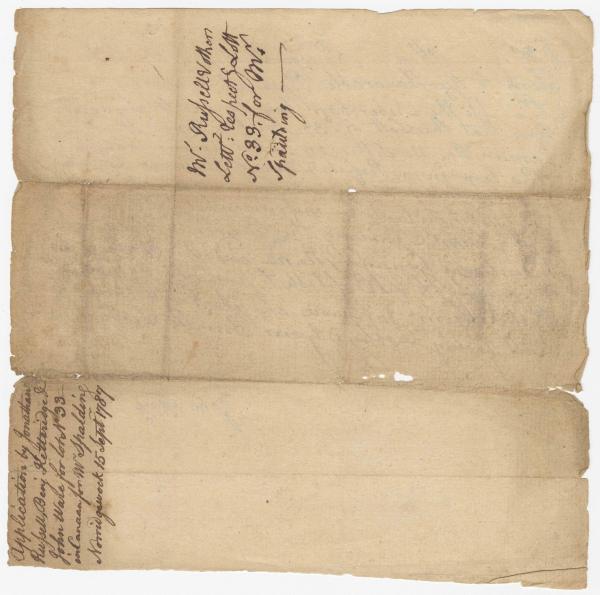 Mr. Russell & others
Lettr. respectg Lott
No. 33. for Mr.
Spaulding
Application by Jonathan
Russell, Benj Ketteridge &
John Wale for lot No 33
in Canaan for Mr Spalding
Norridgewock 15 Sept 1787